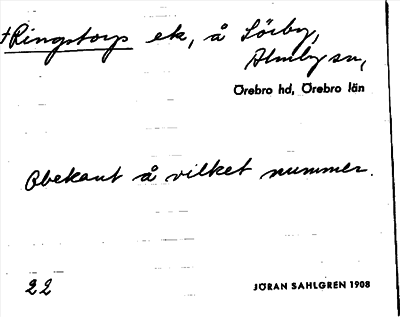 †Ringstorps ek, å Sörby,
Almby sn,
Örebro hd, Örebro län
Obekant å vilket nummer.
22
JÖRAN SAHLGREN 1908